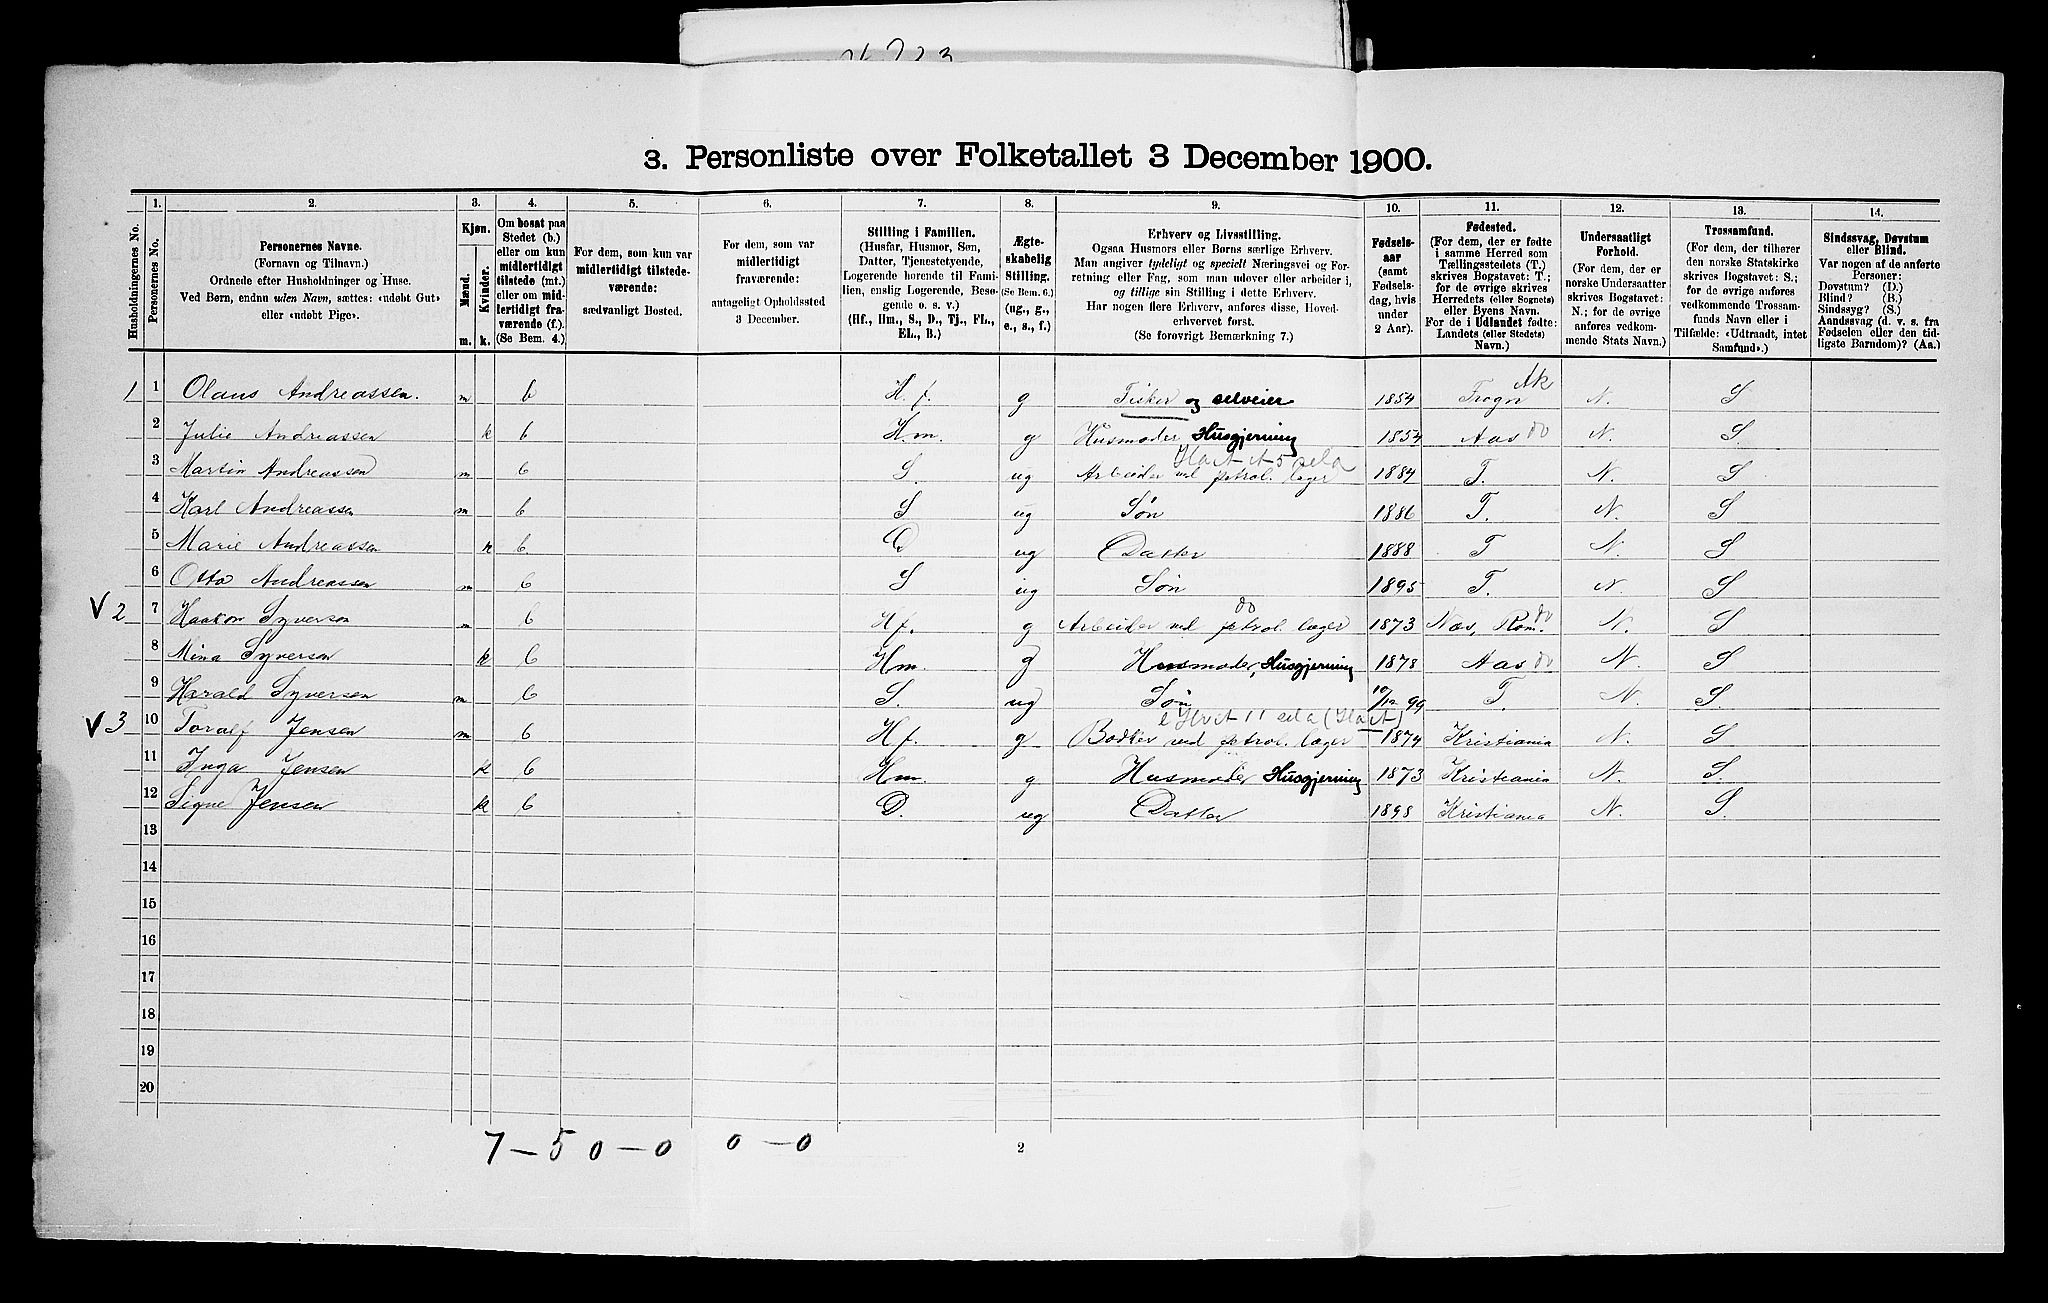 3. Personliste over Folketallet 3 December 1900.
Husholdningernes No.
1. Personernes No.
2. Personernes Navne. (Fornavn og Tilnavn.) Ordnede efter Husholdninger og Huse. Ved Børn, endnu uden Navn, sættes: «udøbt Gut» eller «udøbt Pige».
3. Kjøn. Mænd. m. Kvinder. k.
4. Om bosat paa Stedet (b.) eller om kun midlertidigt tilstede (mt.) eller om midlertidigt fraværende (f.). (Se Bem. 4.)
5. For dem, som kun var midlertidigt tilstedeværende: sædvanligt Bosted.
6. For dem, som var midlertidigt fraværende: antageligt Opholdssted 3 December.
7. Stilling i Familien. (Husfar, Husmor, Søn, Datter, Tjenestetyende, Logerende hørende til Familien, enslig Logerende, Besøgende o. s. v.) (Hf., Hm., S., D., Tj., FL., EL., B.)
8. Ægteskabelig Stilling. (Se Bem. 6.) (ug., g., e., s., f.)
9. Erhverv og Livsstilling. Ogsaa Husmors eller Børns særlige Erhverv. Man angiver tydeligt og specielt Næringsvei og Forretning eller Fag, som man udøver eller arbeider i, og tillige sin Stilling i dette Erhverv. Har nogen flere Erhverv, anføres disse, Hovederhvervet først. (Se forøvrigt Bemærkning 7.)
10. Fødselsaar (samt Fødselsdag, hvis under 2 Aar).
11. Fødested. (For dem, der er fødte i samme Herred som Tællingsstedets (T.) skrives Bogstavet: T.; for de øvrige skrives Herredets (eller Sognets) eller Byens Navn. For de i Udlandet fødte: Landets (eller Stedets) Navn.)
12. Undersaatligt Forhold. (For dem, der er norske Undersaatter skrives Bogstavet: N.; for de øvrige anføres vedkommende Stats Navn.)
13. Trossamfund. (For dem, der tilhører den norske Statskirke skrives Bogstavet: S.; for de øvrige anføres vedkommende Trossamfunds Navn eller i Tilfælde: «Udtraadt, intet Samfund».)
14. Sindssvag, Døvstum eller Blind. Var nogen af de anførte Personer: Døvstum? (D.) Blind? (B.) Sindssyg? (S.) Aandssvag (d. v. s. fra Fødselen eller den tidligste Barndom)? (Aa.)
1 1 Olaus Andreassen. m b H.f. g Fisker og selveier 1854 Frogn Ak N. S
2 Julie Andreassen k b H.m. g Husmoder Husgjerning 1854 Aas do N. S.
3 Martin Andreassen m b S. ug Arbeider ved petrol. lager 1884 T. N. S
4 Karl Andreassen m b S ug Søn 1886 T. N. S
5 Marie Andreassen k b D ug Datter 1888 T N. S
6 Otto Andreassen m b S ug Søn 1895 T. N. S
V 2 7 Haakon Syversen m b Hf. g Arbeider ved petrol. lager do 1873 Næs, Rom. do N. S
8 Mina Syversen k b Hm. g Husmoder, Husgjerning 1878 Aas do N. S
9 Harald Syversen m b S. ug Søn 10/12 99 T. N. S.
V 3 10 Toralf Jensen m b Hf. g Bødker ved petrol. lager 1874 Kristiania N. S
11 Inga Jensen k b Hm. g Husmoder Husgjerning 1873 Kristiania N. S.
12 Signe Jensen k b D. ug Datter 1898 Kristiania N. S.
13
14
15
16
17
18
19
20
7-5 0-0 0-0
2